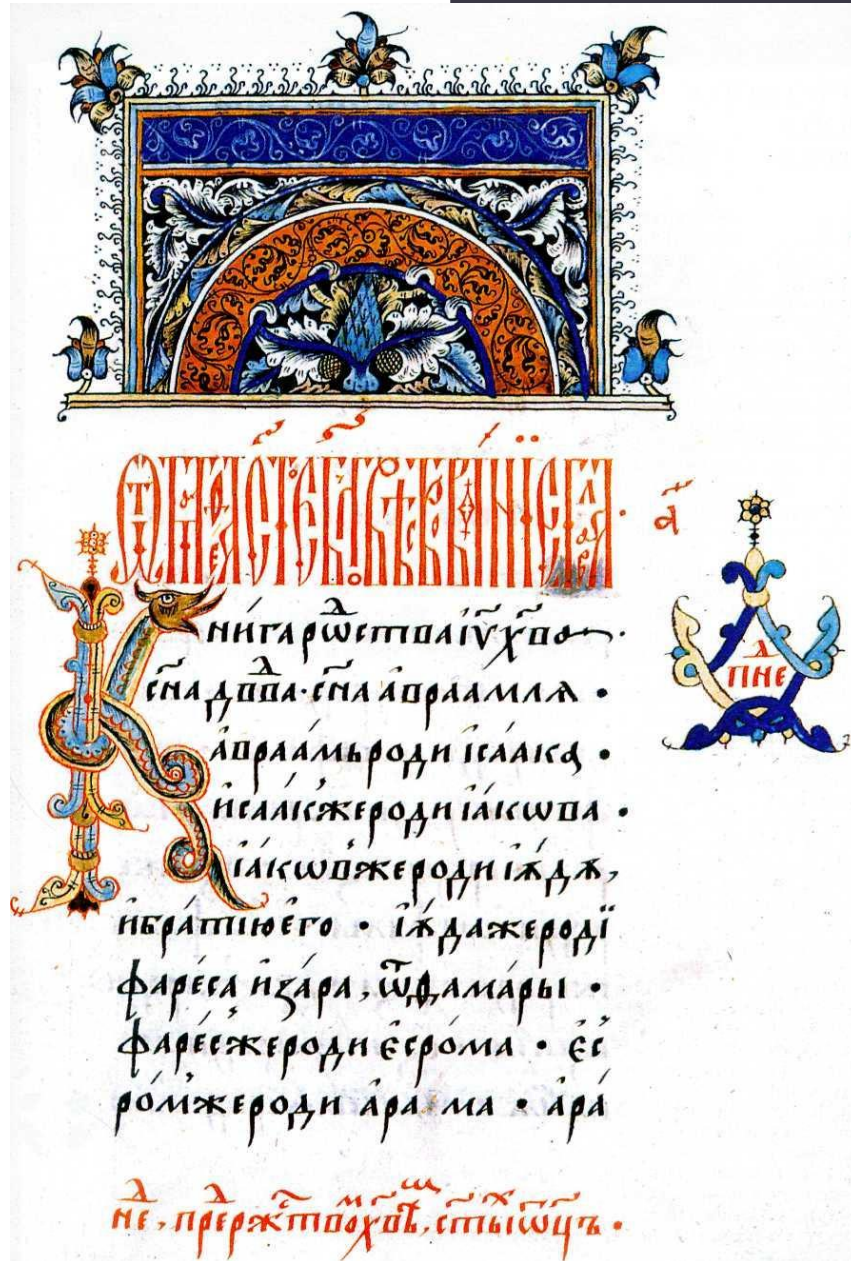 Ѿ МАТѲЕА СТ҃ОЕ БЛ҃ГОВѢСТВОВАНІЕ ГЛАВА · а҃
Кни́га рѡⷣства іѵ҃ х҃во ·
сн҃а дв҃ⷣва · сн҃а а҆враамлѧ •
а҆враа́мь роди ісаа́ка •
и҆саа́кже роди іа́кѡва •
іа́кѡвже роди іѫ́дѫ,
и҆бра́тїю е҆го̀ • іѫ́да же родї
фаре́са и҆ за́ра, ѿ ѳама́ры •
фаре́сже роди є҆сро́ма • є҆с
ро́мже роди а҆ра́ма • а҆ра́
пнеⷣ
неⷣ, преⷣ ржⷭ҇твоⷨ х҃вѣⷨ, ст҃ыⷯ ѿц҃ъ •